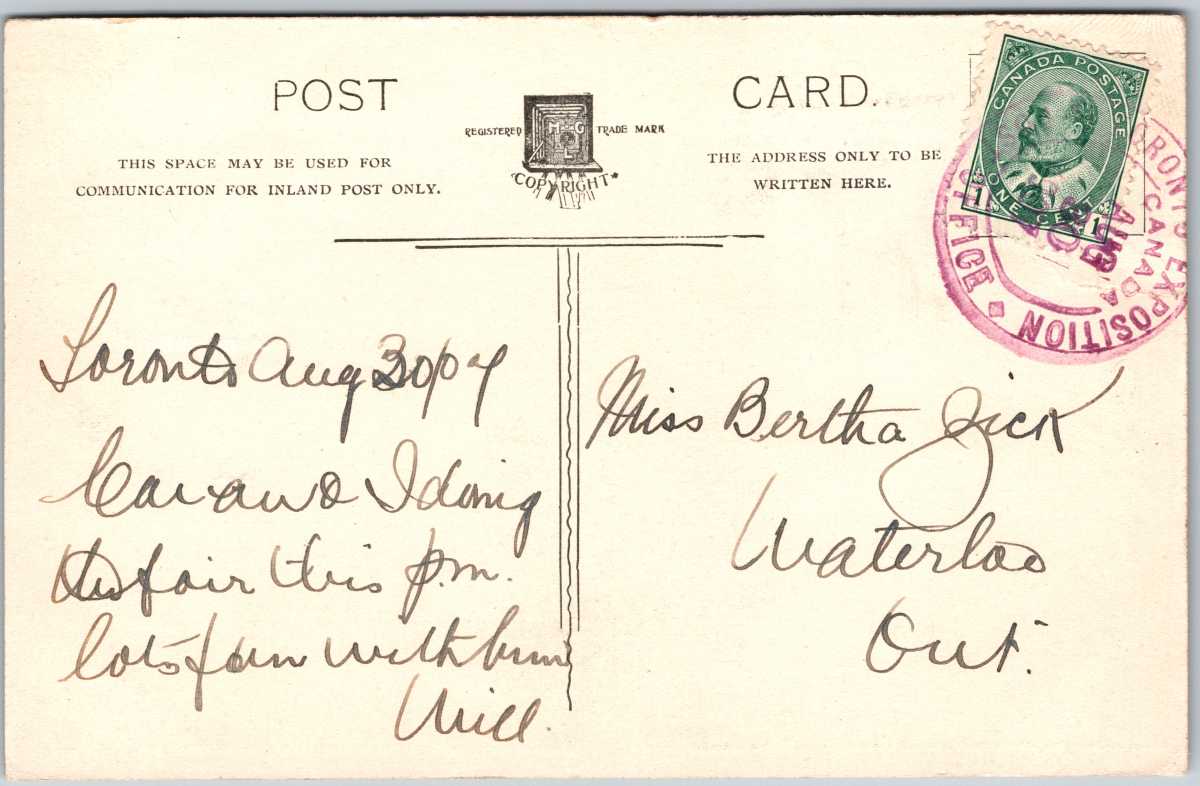 POST CARD.
REGISTERED TRADE MARK
M G L
COPYRIGHT
THIS SPACE MAY BE USED FOR
COMMUNICATION FOR INLAND POST ONLY.
THE ADDRESS ONLY TO BE
WRITTEN HERE.
CANADA POSTAGE
ONE CENT
1 1
EXPOSITION
OFFICE
CANADA
AUG
Toronto Aug 30/09
and I doing
the fair this p.m.
lots fun with him
Will.
Miss Bertha Zick
Waterloo
Ont.